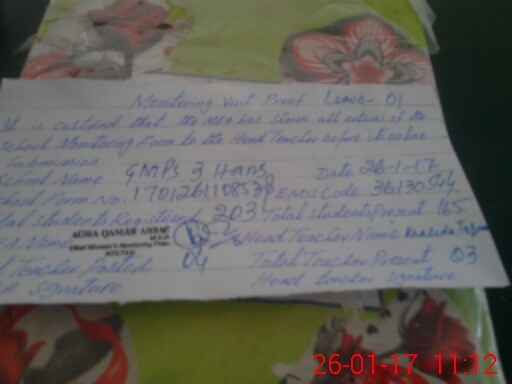 Monitoring Visit Proof Leave - 01
It is certified that the MEA has shown all entries of the
School Monitoring Form to the Head Teacher before its online
Submission.
School Name GMPS 3 Hans Date 26-1-17
School Form No. 170126110853 EMIS Code: 36130544
Total students Registered 203 Total students Present 165
Name Head Teacher Name Khalida
Teacher Posted 04 Total Teacher Present 03
signature Head teacher signature
26-01-17 11:12